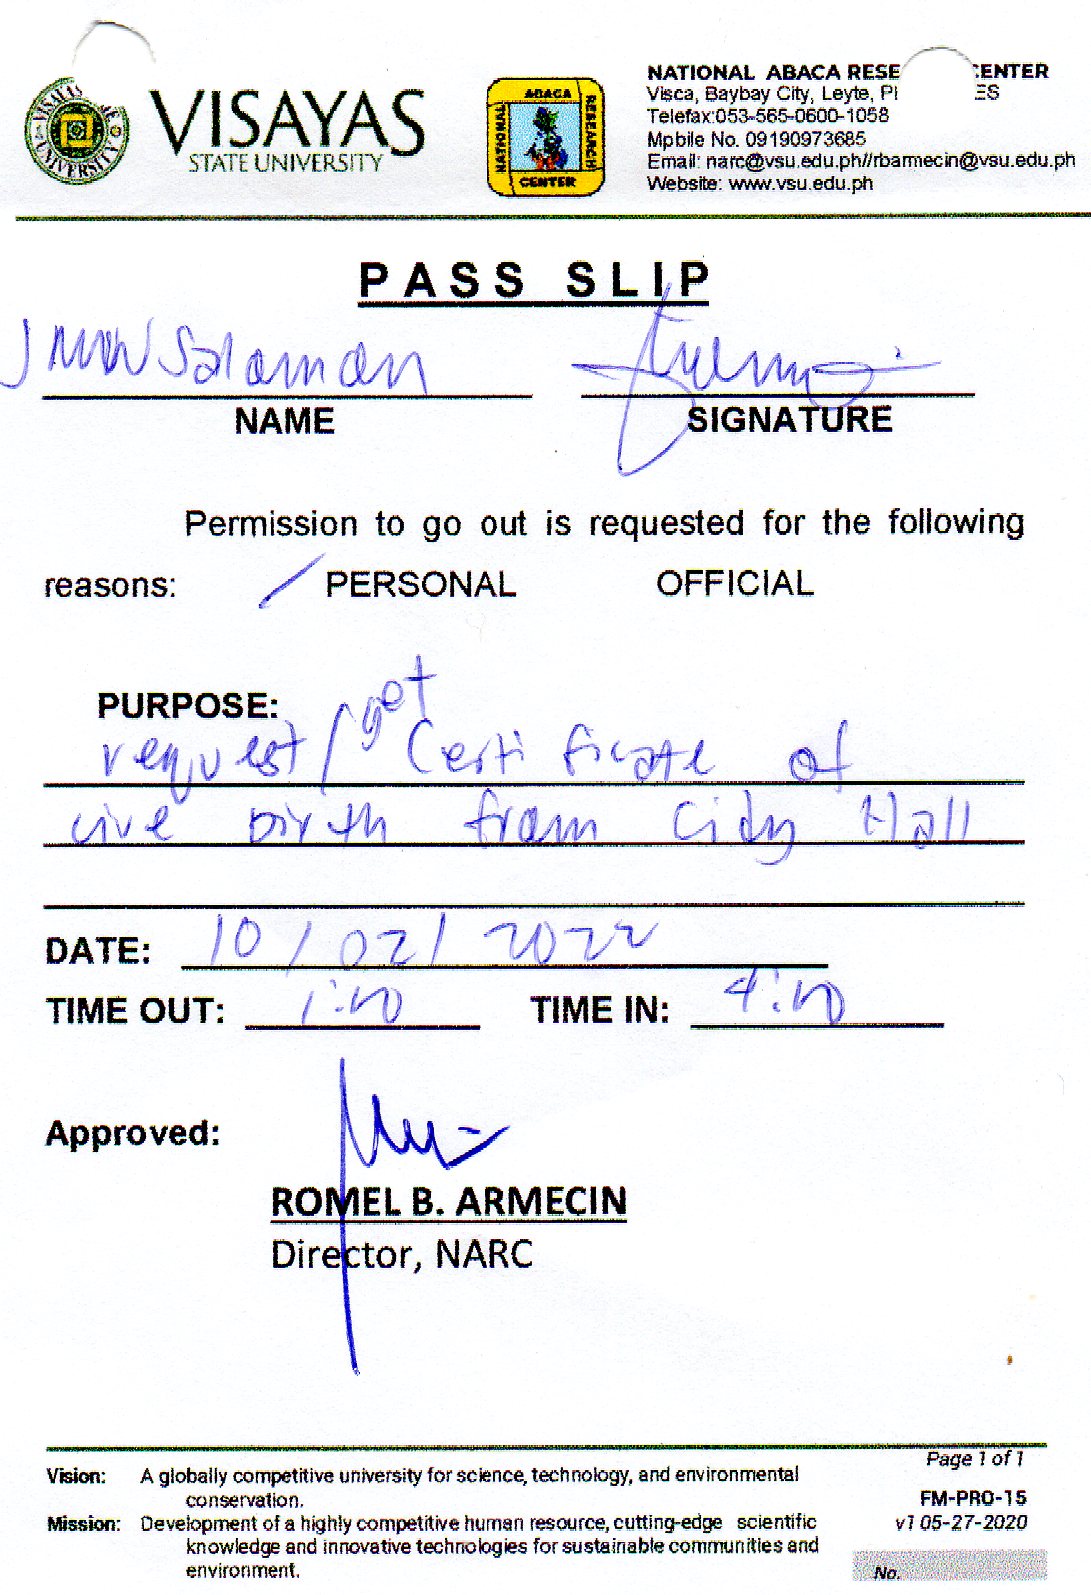 VISAYAS
STATE UNIVERSITY
VISAYAS STATE UNIVERSITY
NATIONAL ABACA RESEARCH CENTER
NATIONAL ABACA RESE CENTER
Visca, Baybay City, Leyte, PI ES
Telefax:053-565-0600-1058
Mpbile No. 09190973685
Email: narc@vsu.edu.ph//rbarmecin@vsu.edu.ph
Website: www.vsu.edu.ph
PASS SLIP
Salaman
NAME SIGNATURE
Permission to go out is requested for the following
reasons: / PERSONAL OFFICIAL
PURPOSE:
request / get Certificate of
live birth from City Hall
DATE: 10/02/2022
TIME OUT: 1:00 TIME IN: 4:00
Approved:
ROMEL B. ARMECIN
Director, NARC
Page 1 of 1
Vision: A globally competitive university for science, technology, and environmental
conservation.
FM-PRO-15
Mission: Development of a highly competitive human resource, cutting-edge scientific
v1 05-27-2020
knowledge and innovative technologies for sustainable communities and
environment.
No.